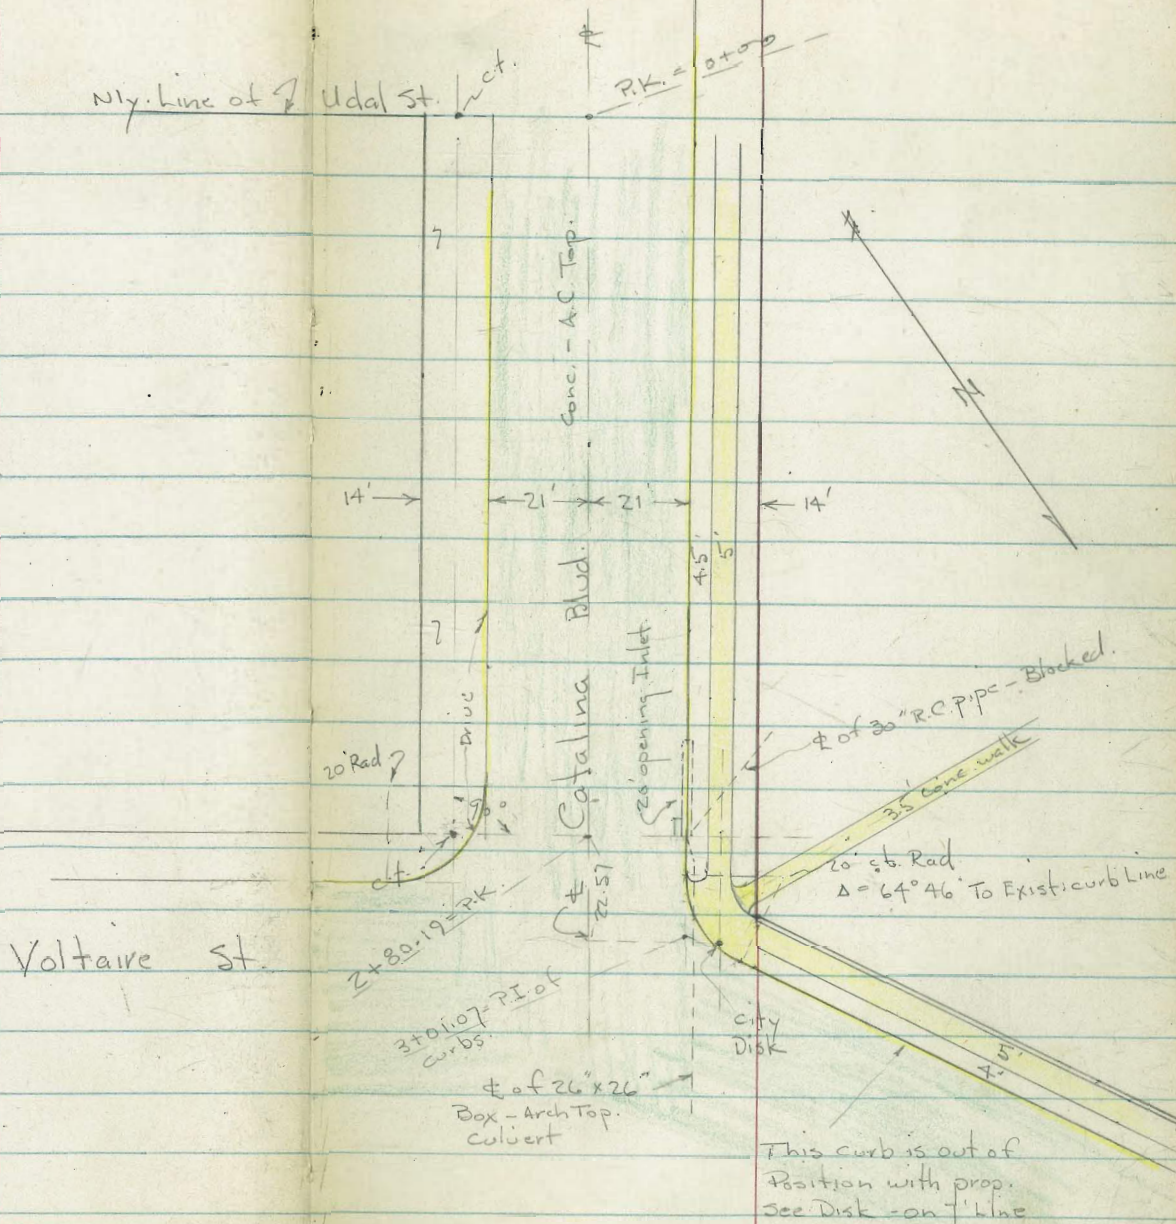 ct.
P.K. = 0+00
Nly. Line of Udal St.
7
Conc. - A.C. Top.
14'
21'
21'
14'
4.5'
5'
Catalina Blvd.
7
Drive
20' opening Inlet.
₵ of 30" R.C. Pipe - Blocked.
20' Rad
3.5' conc. walk
ct.
20' cb. Rad
Δ = 64°46' To Exist. curb Line
₵
22.57
2+80.19 = P.K.
Voltaire St.
3+01.07 = P.I. of
curbs.
City
Disk
5'
4'
₵ of 26" x 26"
Box - Arch Top.
Culvert
This curb is out of
Position with prop.
See Disk - on 7' Line